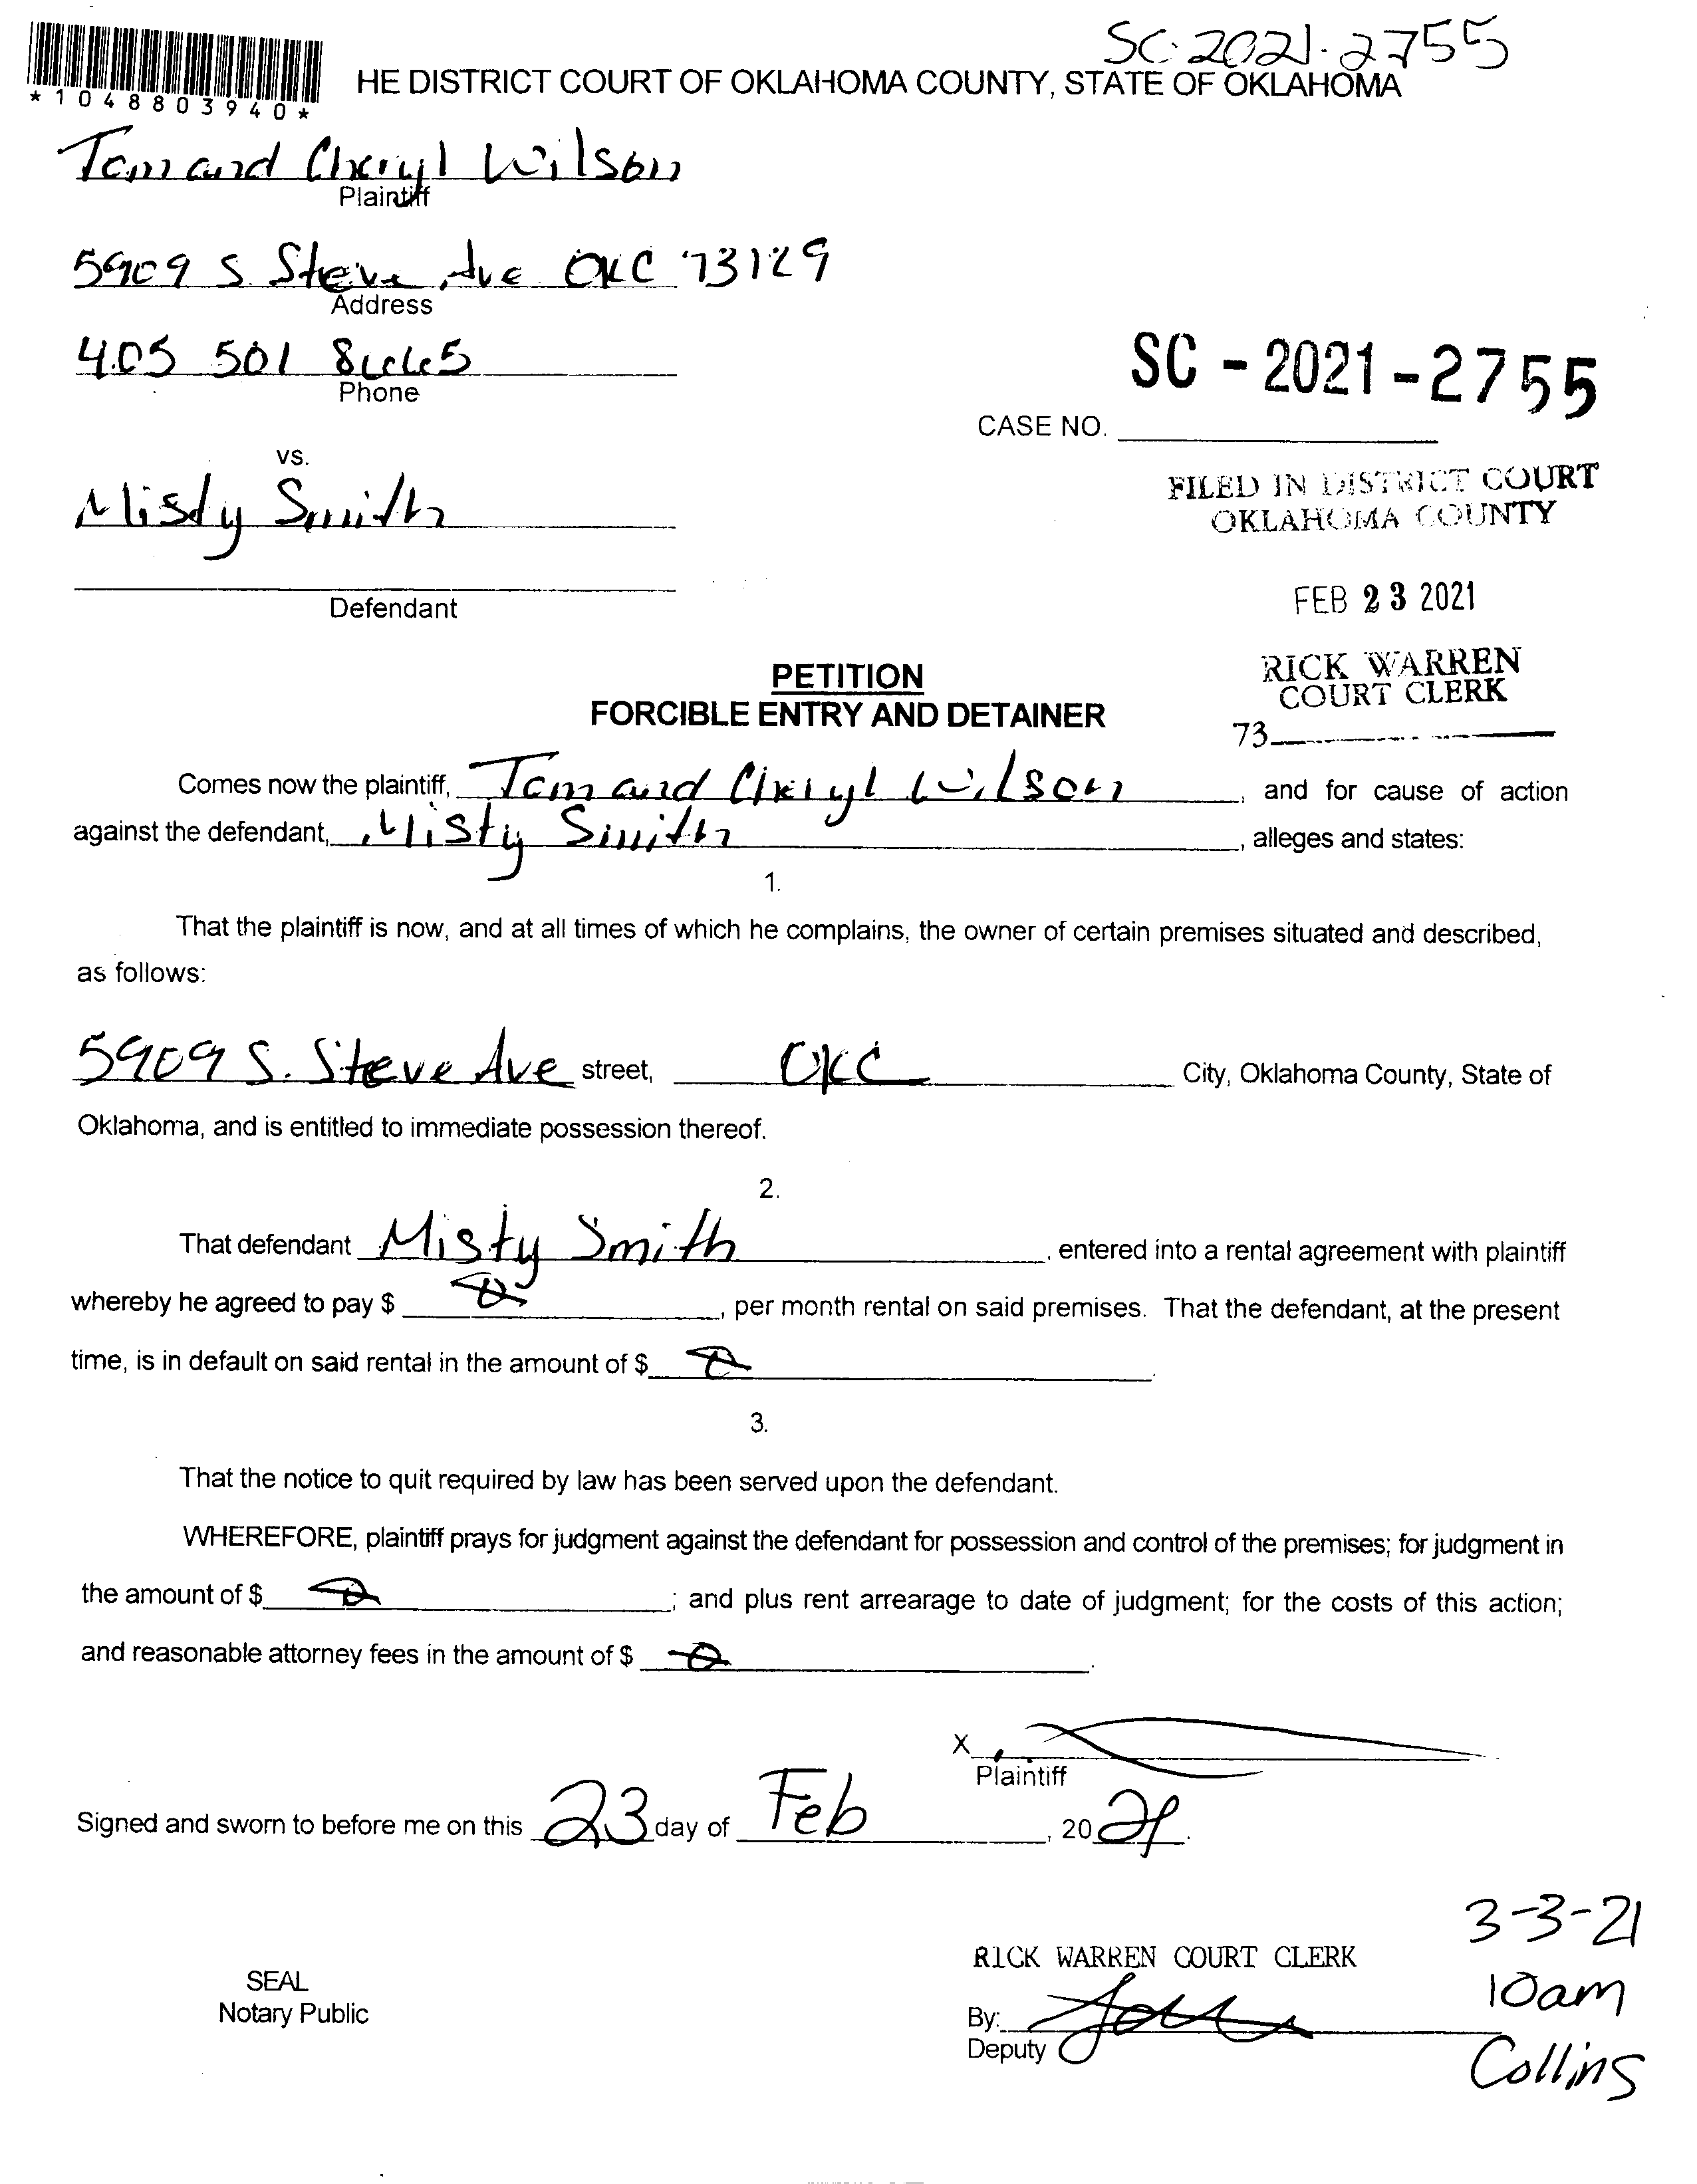 SC-2021-2755
*1048803940*
HE DISTRICT COURT OF OKLAHOMA COUNTY, STATE OF OKLAHOMA
Tom and Cheryl Wilson
Plaintiff
5909 S Steve Ave OKC 73129
Address
405 501
Phone
SC - 2021 - 2755
CASE NO.
vs.
Misty Smith
FILED IN DISTRICT COURT
OKLAHOMA COUNTY
Defendant
FEB 23 2021
PETITION
FORCIBLE ENTRY AND DETAINER
RICK WARREN
COURT CLERK
73
Comes now the plaintiff, Tom and Cheryl Wilson, and for cause of action
against the defendant, Misty Smith, alleges and states:
1.
That the plaintiff is now, and at all times of which he complains, the owner of certain premises situated and described,
as follows:
5909 S. Steve Ave street, OKC City, Oklahoma County, State of
Oklahoma, and is entitled to immediate possession thereof.
2.
That defendant Misty Smith, entered into a rental agreement with plaintiff
whereby he agreed to pay $ 0, per month rental on said premises. That the defendant, at the present
time, is in default on said rental in the amount of $ 0.
3.
That the notice to quit required by law has been served upon the defendant.
WHEREFORE, plaintiff prays for judgment against the defendant for possession and control of the premises; for judgment in
the amount of $ 0; and plus rent arrearage to date of judgment; for the costs of this action;
and reasonable attorney fees in the amount of $ 0.
X
Plaintiff
Signed and sworn to before me on this 23 day of Feb, 2021.
3-3-21
RICK WARREN COURT CLERK
10am
SEAL
Notary Public
By:
Deputy
Collins